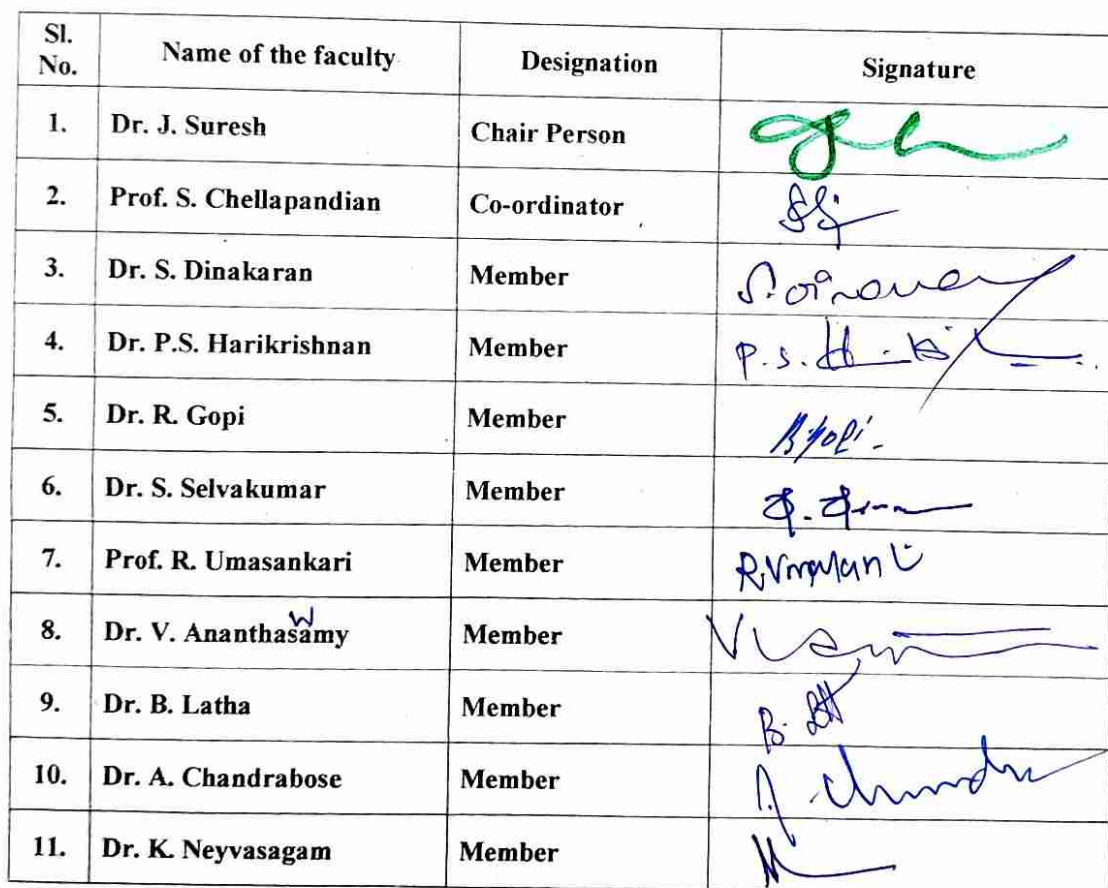 Sl. No. Name of the faculty Designation Signature
1. Dr. J. Suresh Chair Person
2. Prof. S. Chellapandian Co-ordinator
3. Dr. S. Dinakaran Member
4. Dr. P.S. Harikrishnan Member P.S.
5. Dr. R. Gopi Member R. Gopi
6. Dr. S. Selvakumar Member
7. Prof. R. Umasankari Member
w
8. Dr. V. Ananthasamy Member
9. Dr. B. Latha Member
10. Dr. A. Chandrabose Member A. Chandra
11. Dr. K. Neyvasagam Member